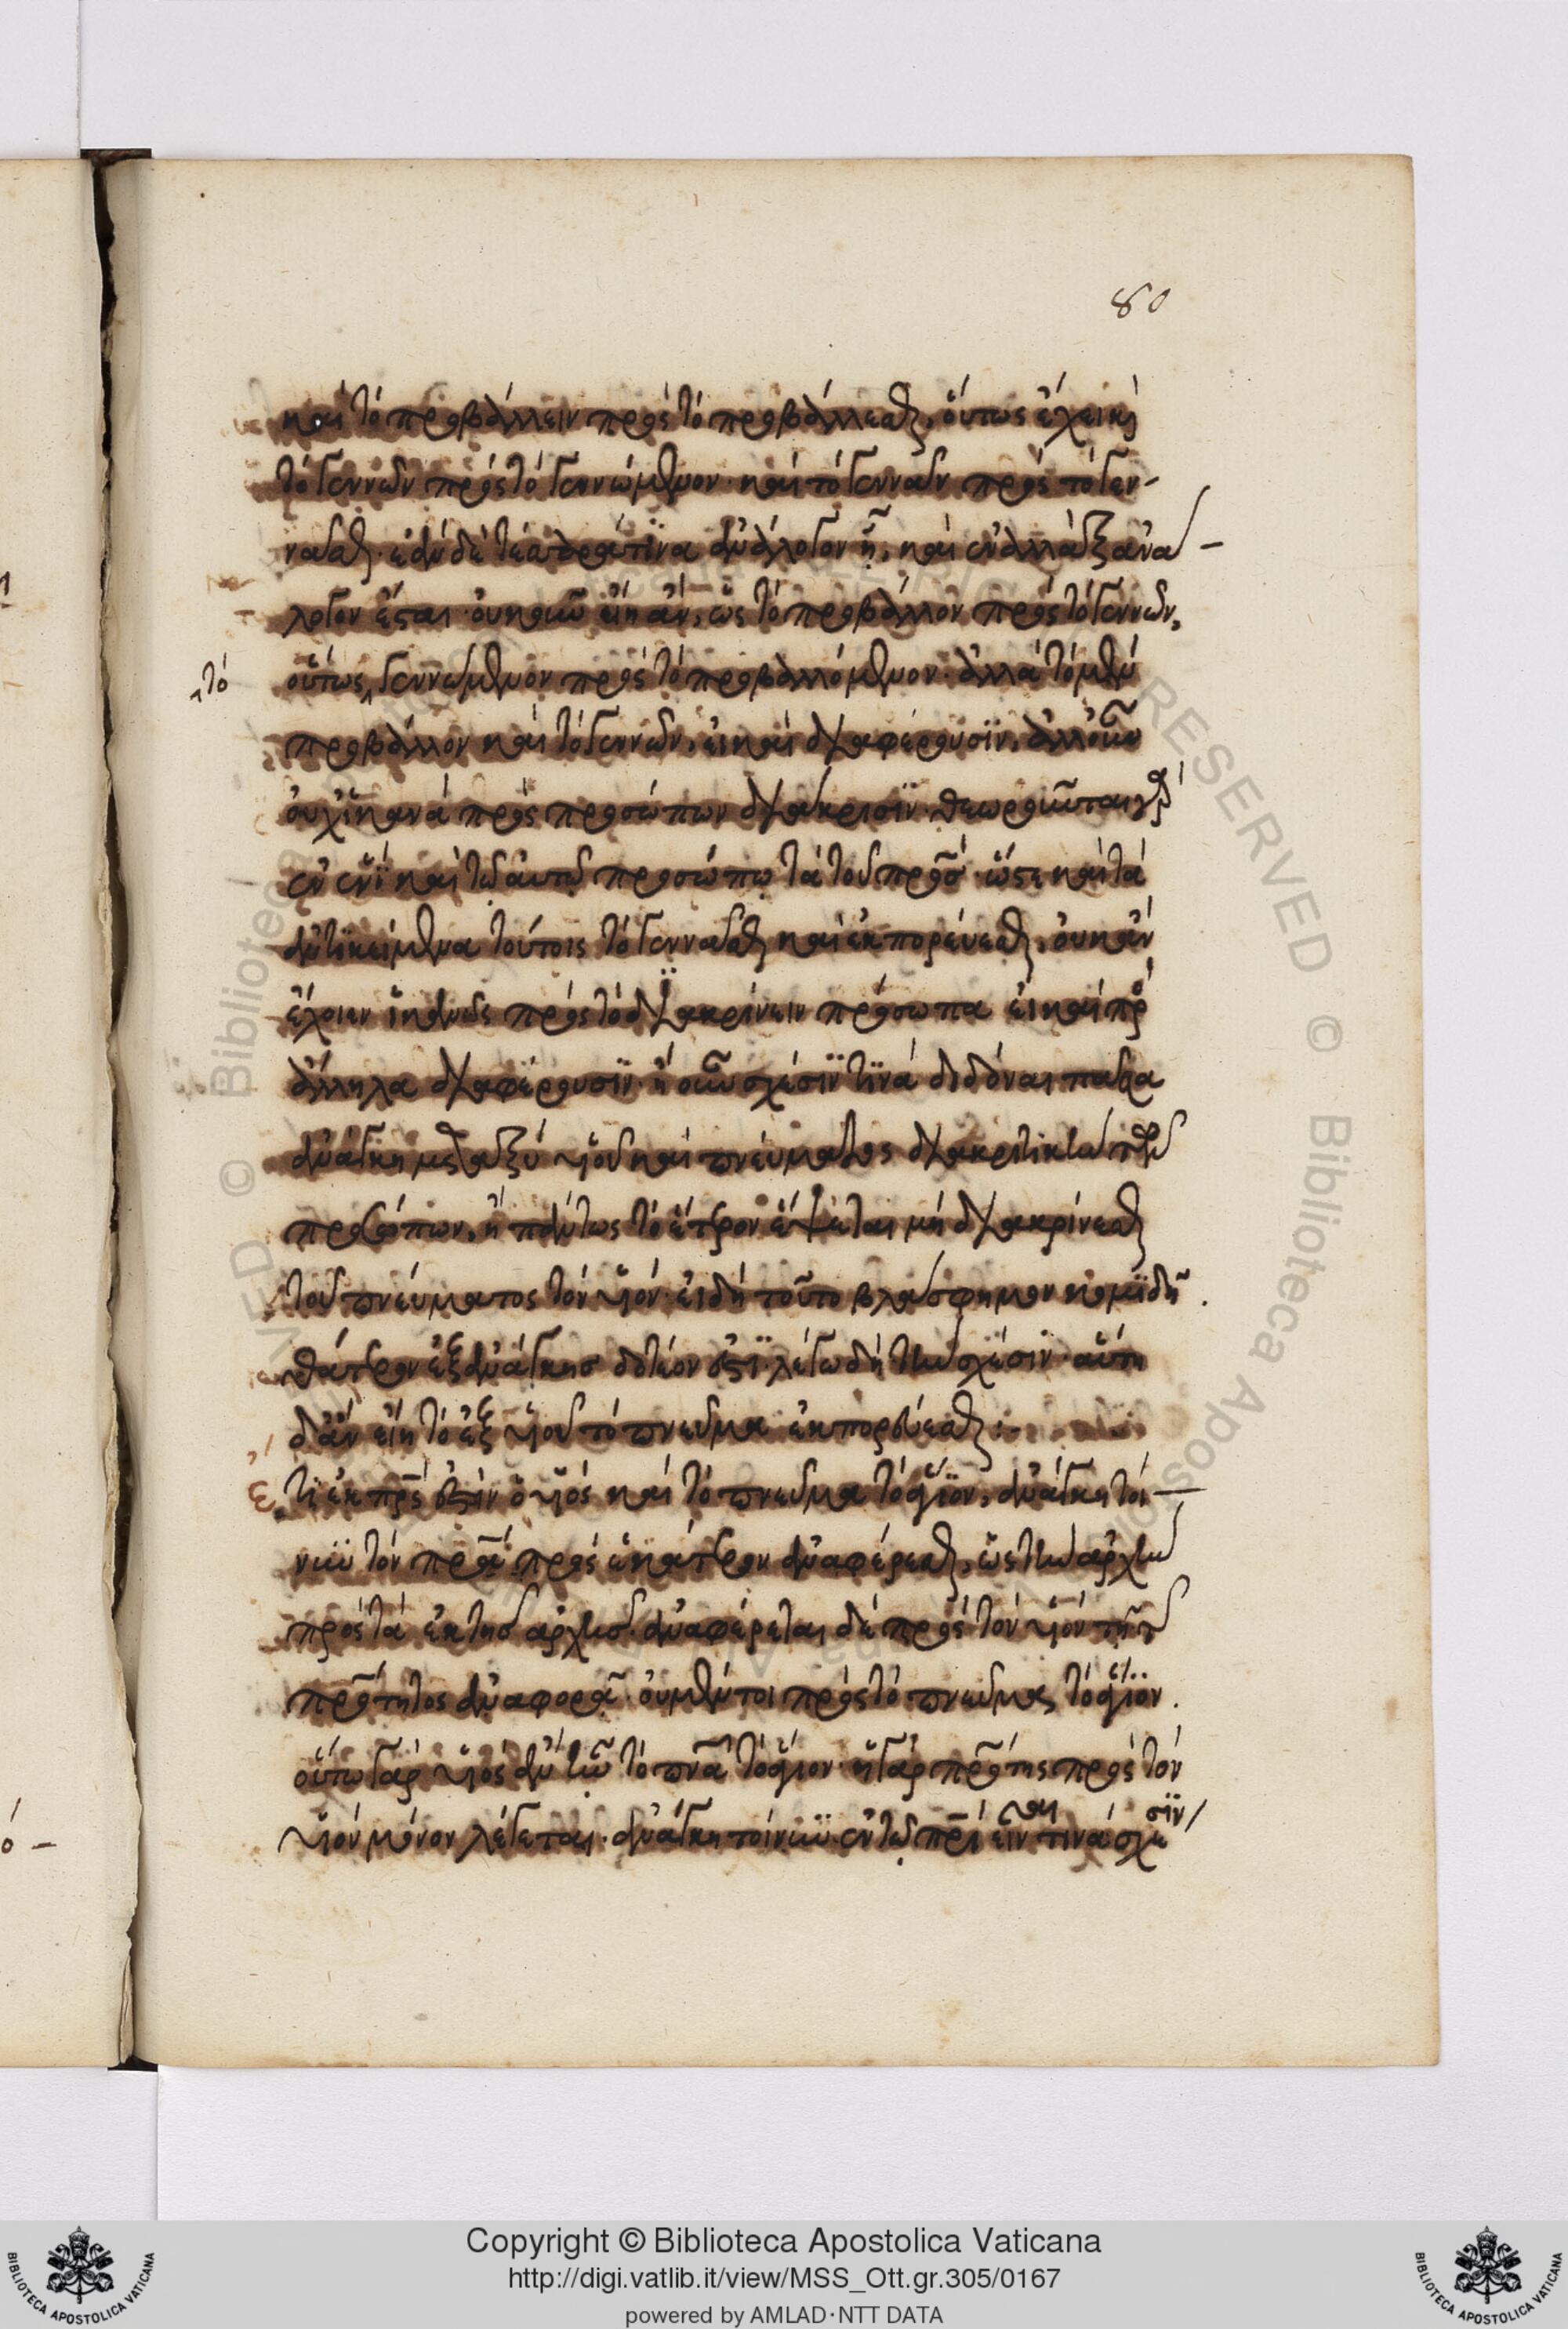 80
καὶ τὸ προβάλλειν πρὸς τὸ προβάλλεσθαι, οὕτως ἔχει καὶ
τὸ γεννῶν πρὸς τὸ γεννώμενον· καὶ τὸ γεννᾶν πρὸς τὸ γεν-
νᾶσθαι· ἐὰν δὲ τέτταρά τινα ἀνάλογον ᾖ, καὶ ἐναλλὰξ ἀνά-
λογον ἔσται· οὐκοῦν εἴη ἂν, ὡς τὸ προβάλλον πρὸς τὸ γεννῶν,
τὸ
οὕτως γεννώμενον πρὸς τὸ προβαλλόμενον· ἀλλὰ τὸ μὲν
προβάλλον καὶ τὸ γεννῶν, εἰ καὶ διαφέρουσιν, ἀλλ' οὖν
οὐχ ἱκανὰ πρὸς προσώπων διάκρισιν· θεωροῦνται γὰρ
ἐν ἑνὶ καὶ τῷ αὐτῷ προσώπῳ τὰ τοῦ πρσ· ὥστε καὶ τὰ
ἀντικείμενα τούτοις τὸ γεννᾶσθαι καὶ ἐκπορεύεσθαι, οὐκ ἂν
ἔχοιεν ἱκανῶς πρὸς τὸ διακρίνειν πρόσωπα εἰ καὶ πρὸς
ἄλληλα διαφέρουσιν· ἢ οὖν σχέσιν τινὰ διδόναι πᾶσα
ἀνάγκη μεταξὺ υἱοῦ καὶ πνεύματος διακριτικὴν τῶν
προσώπων, ἢ πάντως τὸ ἕτερον ἕψεται μὴ διακρίνεσθαι
τοῦ πνεύματος τὸν υἱόν· εἰ δὴ τοῦτο βλάσφημον κομιδῇ.
θάτερον ἐξ ἀνάγκης δοτέον ἐστὶ· λέγω δὴ τὴν σχέσιν· αὕτη
δ' ἂν εἴη τὸ ἐξ υἱοῦ τὸ πνεῦμα ἐκπορεύεσθαι:
Ἔτι ἐκ πρς ἐστὶν ὁ υἱὸς καὶ τὸ πνεῦμα τὸ ἅγιον, ἀνάγκη τοί-
νυν τὸν πρα πρὸς ἑκάτερον ἀναφέρεσθαι, ὡς τὴν ἀρχὴν
πρὸς τὰ ἐκ τῆς ἀρχῆς· ἀναφέρεται δὲ πρὸς τὸν υἱὸν τῇ τῆς
πρότητος ἀναφορᾷ· οὐ μέντοι πρὸς τὸ πνεῦμα τὸ ἅγιον.
οὕτω γὰρ υἱὸς ἂν ἦν τὸ πνα τὸ ἅγιον· ἡ γὰρ πρότης πρὸς τὸν
υἱὸν μόνον λέγεται· ἀνάγκη τοίνυν ἐν τῷ πρὶ εἶναι τινὰ σχέσιν
Copyright © Biblioteca Apostolica Vaticana
http://digi.vatlib.it/view/MSS_Ott.gr.305/0167
powered by AMLAD·NTT DATA